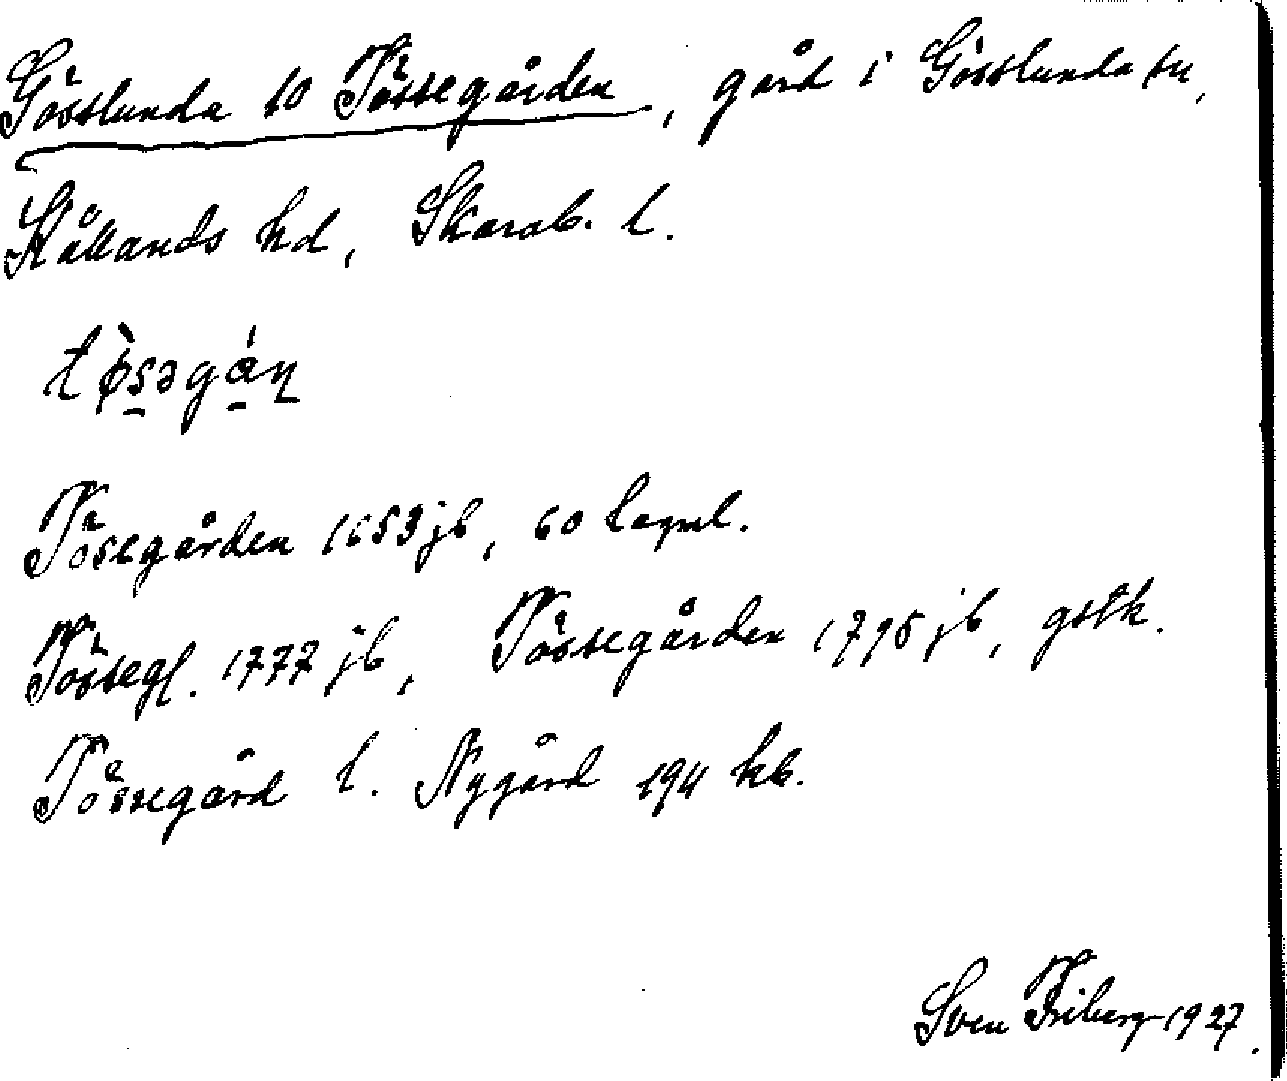 Gösslunda 10 Tössegården, gård i Gösslunda sn,
Kållands hd, Skarab. l.
Tösegården 1653 jb, 60
Tössegl. 1777 jb, Tössegården 1795 jb, gstk.
Tössegård l. Nygård 1911 kb.
Sven Friberg 1927.